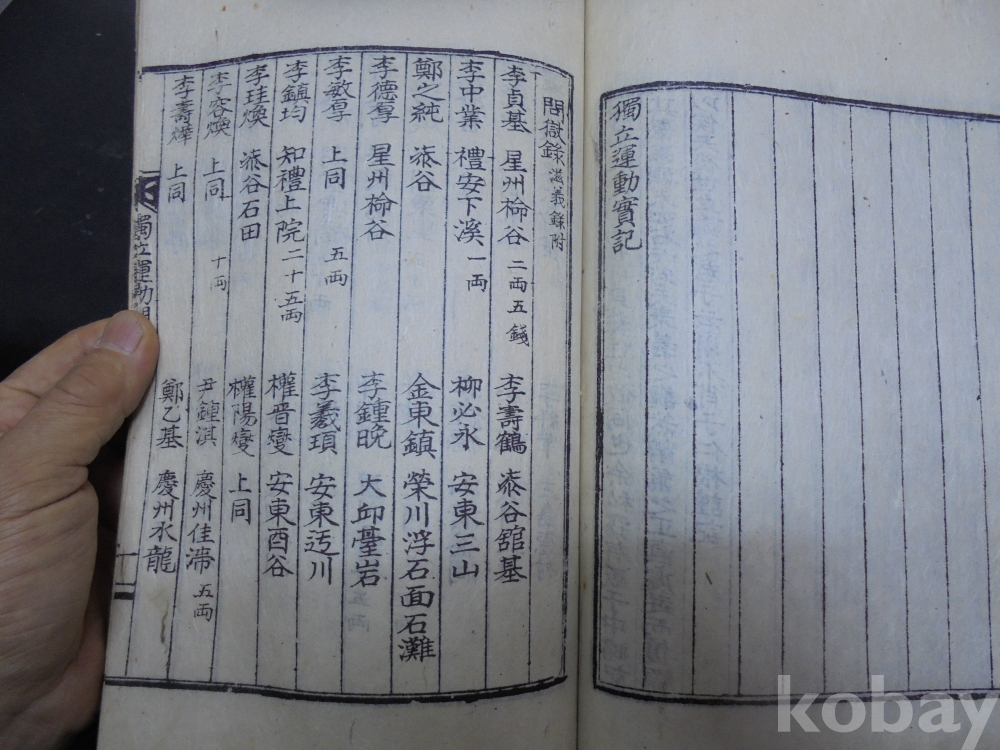 獨立運動實記
問獄錄 滋義錄附
李貞基 星州柃谷 二両五錢 李壽鶴 桼谷舘基
李中業 禮安下溪 一両 柳必永 安東三山
鄭之純 桼谷 金東鎮 榮川浮石面石灘
李德厚 星州柃谷 李鍾晚 大邱臺岩
李敏厚 上同 五両 李羲瑣 安東迃川
李鎮均 知禮上院 二十五両 權晋燮 安東酉谷
李珪煥 桼谷石田 權陽燮 上同
李容煥 上同 十両 尹鍾淇 慶州佳 五両
李壽燁 上同 鄭乙基 慶州水龍
獨立運動
kobay